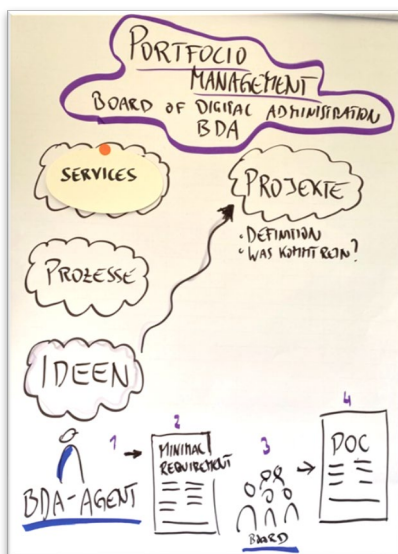 PORTFOLIO
MANAGEMENT
BOARD OF DIGITAL ADMINISTRATION
BDA
SERVICES
PROJEKTE
• DEFINITION
• WAS KOMMT REIN?
PROZESSE
IDEEN
1
2
3
4
MINIMAL
REQUIREMENT
DOC
BDA-AGENT
BOARD